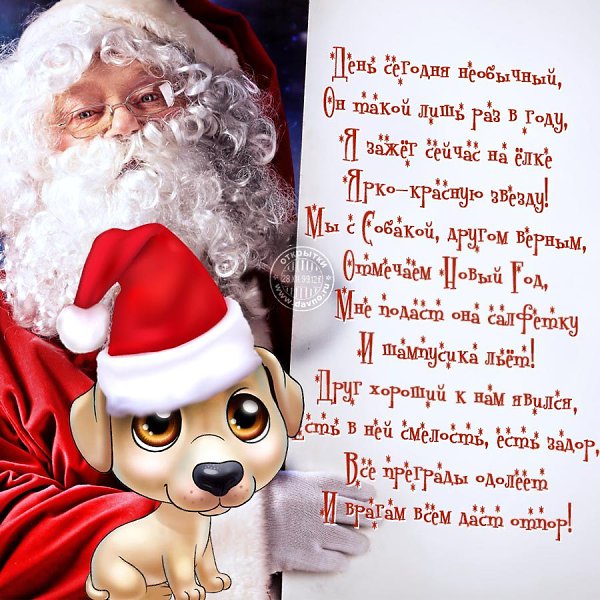 День сегодня необычный,
Он такой лишь раз в году,
Я зажёг сейчас на ёлке
Ярко-красную звезду!
Мы с Собакой, другом верным,
Отмечаем Новый Год,
Мне подаст она салфетку
И шампусика льёт!
Друг хороший к нам явился,
Есть в ней смелость, есть задор,
Все преграды одолеет
И врагам всем даст отпор!
ОТКРЫТКИ
www.davno.ru